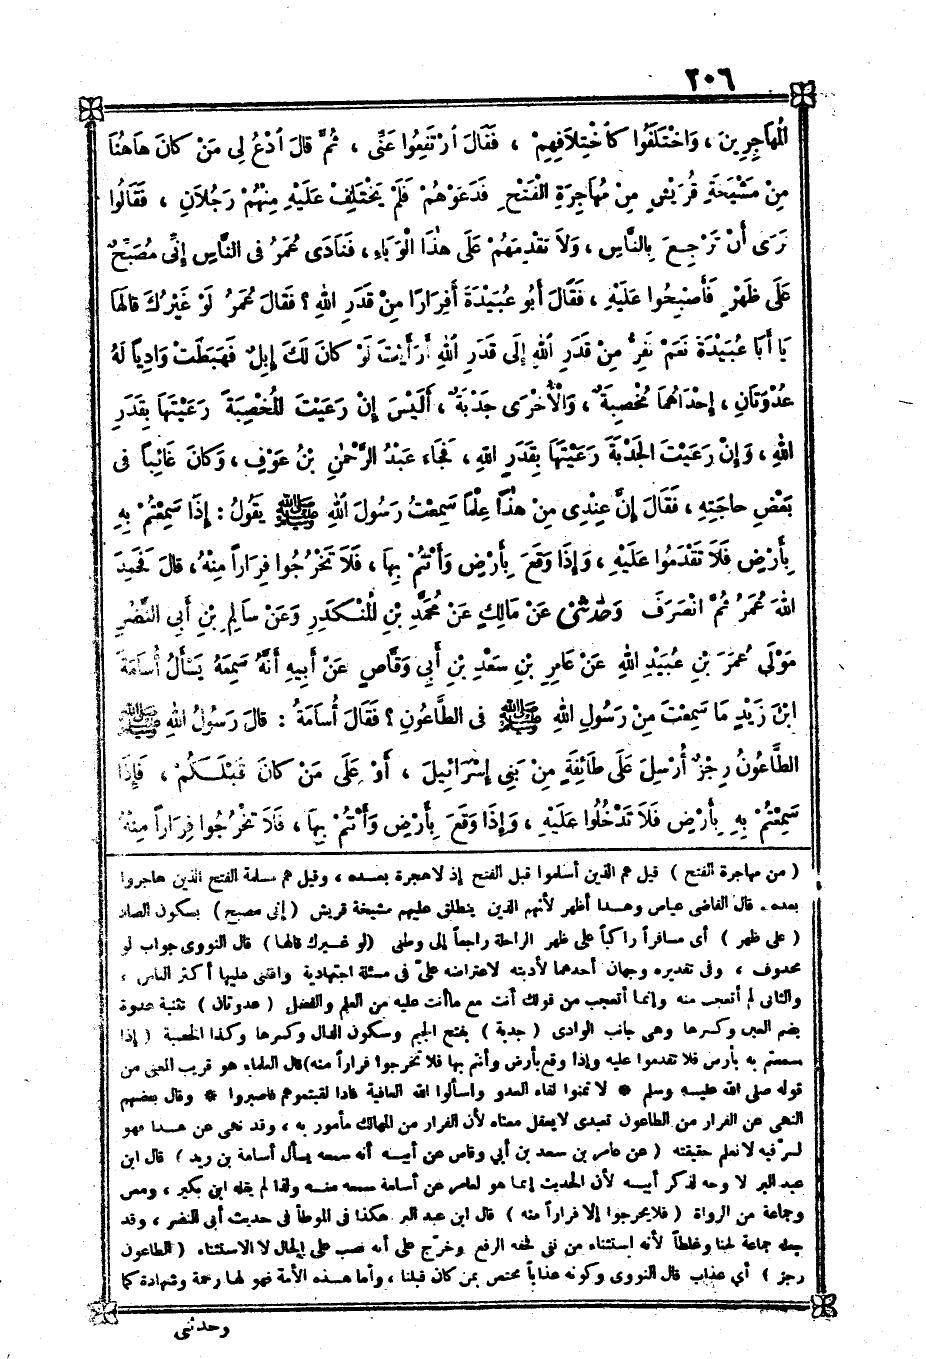 ٢٠٦
الْمُهَاجِرِينَ ، وَاخْتَلَفُوا كَاخْتِلَافِهِمْ ، فَقَالَ ارْتَفِعُوا عَنِّى ، ثُمَّ قَالَ ادْعُ لِى مَنْ كَانَ هَاهُنَا
مِنْ مَشْيَخَةِ قُرَيْشٍ مِنْ مُهَاجِرَةِ الْفَتْحِ فَدَعَوْهُمْ فَلَمْ يَخْتَلِفْ عَلَيْهِ مِنْهُمْ رَجُلَانِ ، فَقَالُوا
نَرَى أَنْ تَرْجِعَ بِالنَّاسِ ، وَلَا تَقْدِمَهُمْ عَلَى هٰذَا الْوَبَاءِ ، فَنَادَى عُمَرُ فِى النَّاسِ إِنِّى مُصَبِّحٌ
عَلَى ظَهْرٍ فَأَصْبِحُوا عَلَيْهِ ، فَقَالَ أَبُو عُبَيْدَةَ أَفِرَارًا مِنْ قَدَرِ اللهِ ؟ فَقَالَ عُمَرُ لَوْ غَيْرُكَ قَالَهَا
يَا أَبَا عُبَيْدَةَ نَعَمْ نَفِرُّ مِنْ قَدَرِ اللهِ إِلَى قَدَرِ اللهِ أَرَأَيْتَ لَوْ كَانَ لَكَ إِبِلٌ فَهَبَطَتْ وَادِيًا لَهُ
عُدْوَتَانِ ، إِحْدَاهُمَا مُخْصِبَةٌ ، وَالْأُخْرَى جَدْبَةٌ ، أَلَيْسَ إِنْ رَعَيْتَ الْمُخْصِبَةَ رَعَيْتَهَا بِقَدَرِ
اللهِ ، وَإِنْ رَعَيْتَ الْجَدْبَةَ رَعَيْتَهَا بِقَدَرِ اللهِ ، فَجَاءَ عَبْدُ الرَّحْمٰنِ بْنُ عَوْفٍ ، وَكَانَ غَائِبًا فِى
بَعْضِ حَاجَتِهِ ، فَقَالَ إِنَّ عِنْدِى مِنْ هٰذَا عِلْمًا سَمِعْتُ رَسُولَ اللهِ ﷺ يَقُولُ : إِذَا سَمِعْتُمْ بِهِ
بِأَرْضٍ فَلَا تَقْدَمُوا عَلَيْهِ ، وَإِذَا وَقَعَ بِأَرْضٍ وَأَنْتُمْ بِهَا ، فَلَا تَخْرُجُوا فِرَارًا مِنْهُ ، قَالَ فَحَمِدَ
اللهَ عُمَرُ ثُمَّ انْصَرَفَ وَحَدَّثَنِى عَنْ مَالِكٍ عَنْ مُحَمَّدِ بْنِ الْمُنْكَدِرِ وَعَنْ سَالِمِ بْنِ أَبِى النَّضْرِ
مَوْلَى عُمَرَ بْنِ عُبَيْدِ اللهِ عَنْ عَامِرِ بْنِ سَعْدِ بْنِ أَبِى وَقَّاصٍ عَنْ أَبِيهِ أَنَّهُ سَمِعَهُ يَسْأَلُ أُسَامَةَ
ابْنَ زَيْدٍ مَا سَمِعْتَ مِنْ رَسُولِ اللهِ ﷺ فِى الطَّاعُونِ ؟ فَقَالَ أُسَامَةُ : قَالَ رَسُولُ اللهِ ﷺ
الطَّاعُونُ رِجْزٌ أُرْسِلَ عَلَى طَائِفَةٍ مِنْ بَنِى إِسْرَائِيلَ ، أَوْ عَلَى مَنْ كَانَ قَبْلَكُمْ ، فَإِذَا
سَمِعْتُمْ بِهِ بِأَرْضٍ فَلَا تَدْخُلُوا عَلَيْهِ ، وَإِذَا وَقَعَ بِأَرْضٍ وَأَنْتُمْ بِهَا ، فَلَا تَخْرُجُوا فِرَارًا مِنْهُ
( من مهاجرة الفتح ) قيل هم الذين أسلموا قبل الفتح إذ لا هجرة بعده ، وقيل هم مسلمة الفتح الذين هاجروا
بعده . قال القاضى عياض وهذا أظهر لأنهم الذين ينطلق عليهم مشيخة قريش ( إنى مصبح ) بسكون الصاد
( على ظهر ) أى مسافراً راكباً على ظهر الراحلة راجعاً إلى وطنى (لو غيرك قالها) قال النووى جواب لو
محذوف ، وفى تقديره وجهان أحدهما لأدبته لاعتراضه علىّ فى مسئلة اجتهادية وافقنى عليها أكثر الناس ،
والثانى لم أتعجب منه وإنما أتعجب من قولك أنت مع ماأنت عليه من العلم والفضل ( عدوتان ) تثنية عدوة
بضم العين وكسرها وهى جانب الوادى ( جدبة ) بفتح الجيم وسكون الدال وكسرها وكذا الخصبة ( إذا
سمعتم به بأرض فلا تقدموا عليه وإذا وقع بأرض وأنتم بها فلا تخرجوا فراراً منه)قال العلماء هو قريب المعنى من
قوله صلى الله عليه وسلم * لا تمنوا لقاء العدو واسألوا الله العافية فاذا لقيتموهم فاصبروا * وقال بعضهم
النهى عن الفرار من الطاعون تعبدى لايعقل معناه لأن الفرار من المهالك مأمور به ، وقد نهى عن هذا فهو
لسرّ فيه لا نعلم حقيقته ( عن عامر بن سعد بن أبي وقاص عن أبيه أنه سمعه يسأل أسامة بن زيد ) قال ابن
عبد البر لا وجه لذكر أبيه لأن الحديث إنما هو لعامر عن أسامة سمعه منه ولذا لم يقله ابن بكير ، ومعن
وجماعة من الرواة ( فلايخرجوا إلا فراراً منه ) قال ابن عبد البر هكذا فى الموطأ فى حديث أبى النضر ، وقد
جعله جماعة لحنا وغلطاً لأنه استثناء من نفى فحقه الرفع وخرّج على أنه نصب على الحال لا الاستثناء ( الطاعون
رجز ) أي عذاب قال النووى وكونه عذاباً مختص بمن كان قبلنا ، وأما هذه الأمة فهو لها رحمة وشهادة كما
وحدثنى